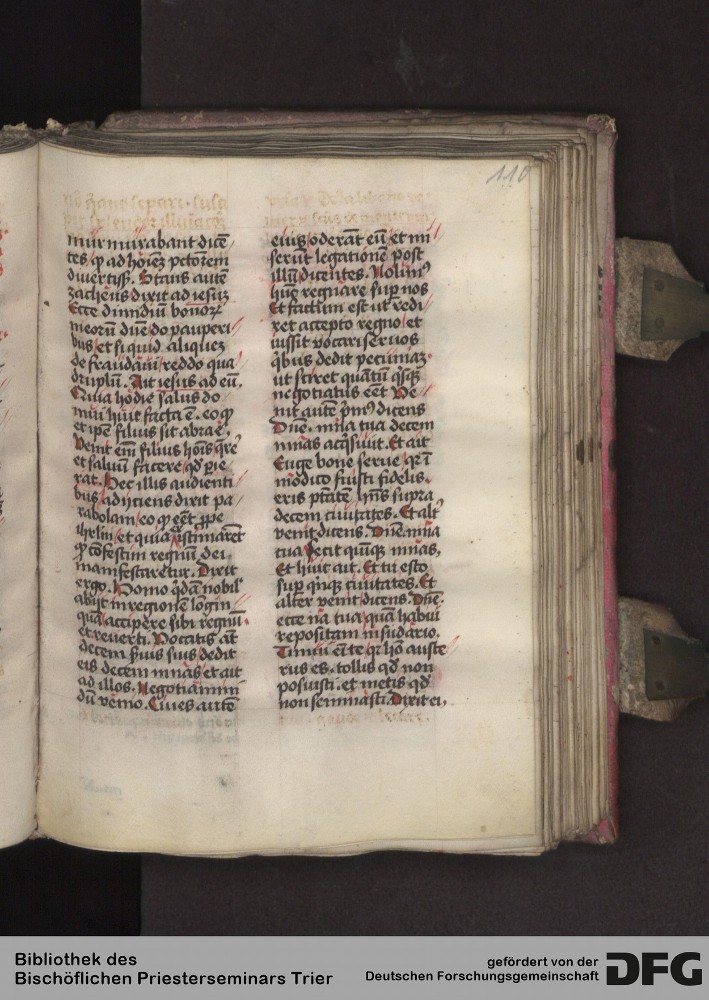 110
murmurabant dicē
tes ꝙ ad hoīeꝫ pctorem
diuertiss̄. Stans autē
zacheus dixit ad iesuꝫ
Ecce dimidiū bonoꝝ
meorū dn̄e do pauperi
bus et si quid aliqueꝫ
defraudaui reddo qua
druplū. Ait iesus ad eū.
Quia hodie salus do
mui huic facta ē. eo ꝙ
et ip̄e filius sit abrae.
Venit em̄ filius hoīs q̄re
et saluū facere qd̄ ꝑie
rat. Hec illis audienti
bus adijciens dixit pa
rabolam eo ꝙ eēt ꝓpe
ihrlm̄ et quia estimarēt
ꝙ cōfestim regnū dei
manifestaretur. Dixit
ergo. Homo q̄dā nobil
abijt in regionē login
quā accipere sibi regnū
et reuerti. Vocatis aūt
decem s̄uis suis dedit
eis decem mnas et ait
ad illos. Negotiamini
dū venio. Ciues autē
eius oderāt eū et mi
serūt legationem post
illū dicentes. Nolimꝰ
hūc regnare sup̄ nos
Et factum est ut redi
ret accepto regno et
iussit vocari seruos
q̄bus dedit pecuniaꝫ
ut sciret quātū q̄sqꝫ
negotiatus eēt Ve
nit autē p̄mꝰ dicens
Dn̄e. mna tua decem
mnas acq̄siuit. Et ait
Euge bone serue qꝛ ī
modico fuisti fidelis.
eris ptātē hn̄s supra
decem ciuitates. Et alt
venit dicens. Dn̄e. mna
tua fecit quīqꝫ mnas,
Et huic ait. Et tu esto
sup̄ q̄nqꝫ ciuitates. Et
alter venit dicens. Dn̄e
ecce na tua quā habui
repositam in sudario.
Timui em̄ te qꝛ hō auste
rus es. tollis qd̄ non
posuisti. et metis qd̄
non seminasti. Dixit ei,
Bibliothek des
Bischöflichen Priesterseminars Trier
gefördert von der
Deutschen Forschungsgemeinschaft
DFG